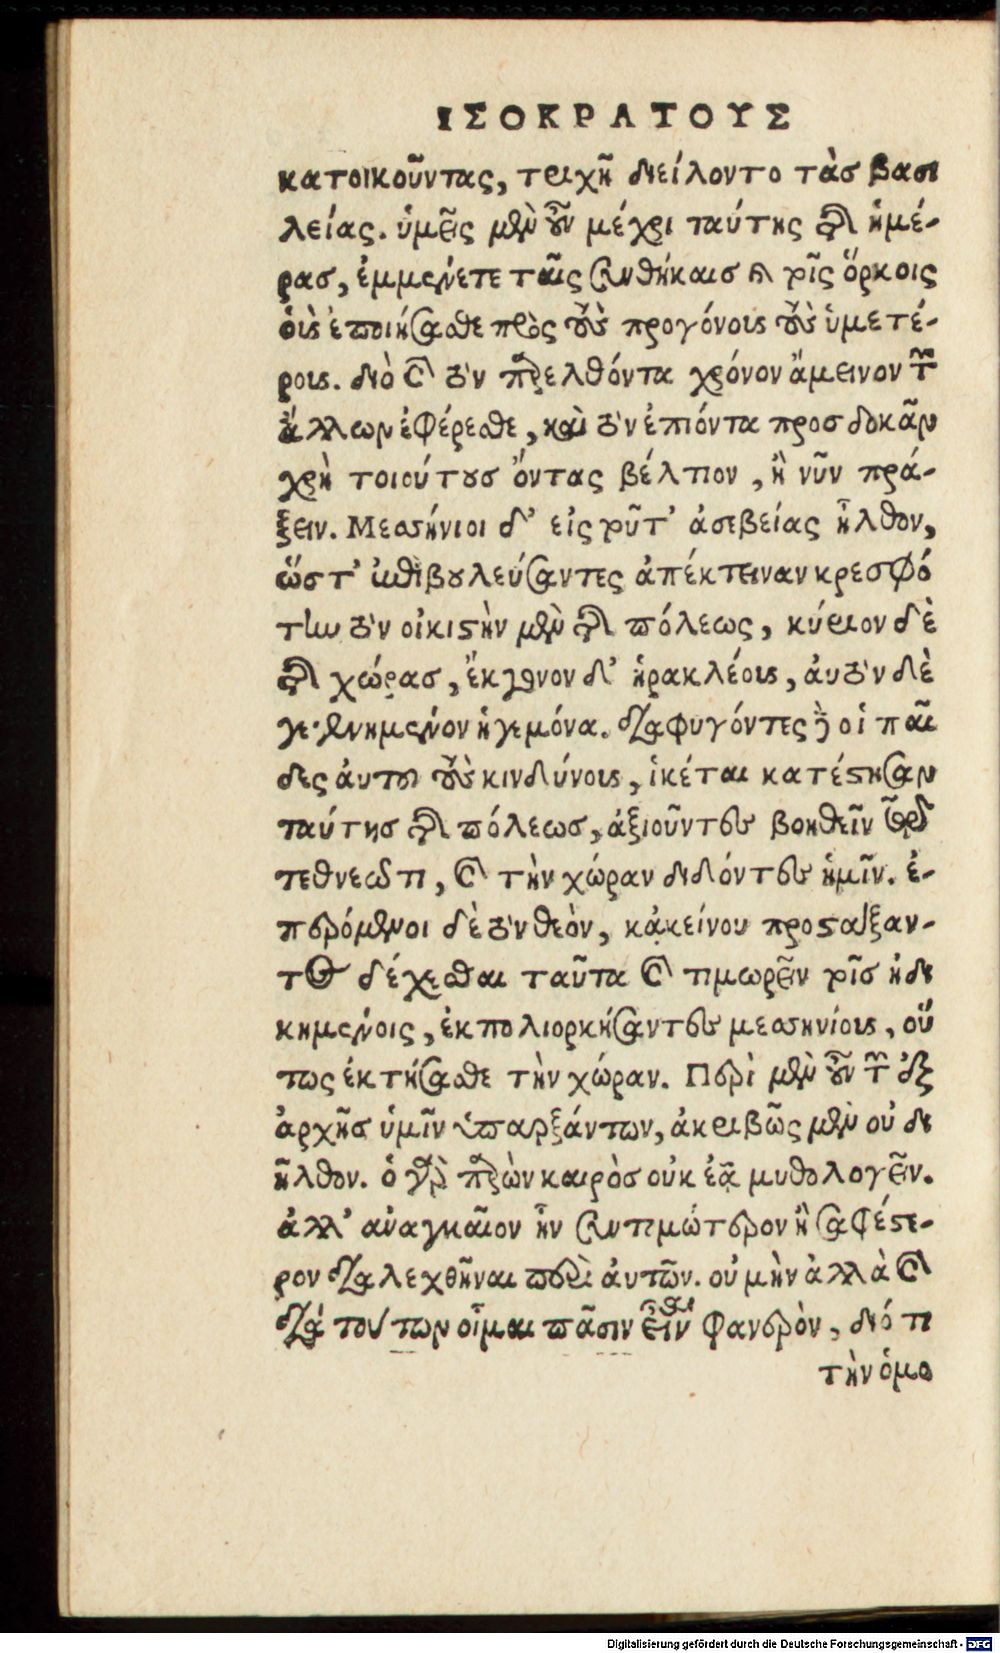 ΙΣΟΚΡΑΤΟΥΣ
κατοικοῦντας, τριχῆ διείλοντο τὰσ βασι
λείας. ὑμεῖς μὲν οὖν μέχρι ταύτης τῆς ἡμέ-
ρασ, ἐμμένετε ταῖς συνθήκαισ καὶ τοῖς ὅρκοις
οὓς ἐποιήσασθε πρὸς τοὺς προγόνους τοὺς ὑμετέ-
ρους. διὸ καὶ τὸν παρελθόντα χρόνον ἄμεινον τῶν
ἄλλων ἐφέρεσθε, καὶ τὸν ἐπιόντα προσδοκᾶν
χρὴ τοιούτουσ ὄντας βέλτιον, ἢ νῦν πρά-
ξειν. Μεσσήνιοι δ' εἰς τοῦτ' ἀσεβείας ἦλθον,
ὥστ' ἐπιβουλεύσαντες ἀπέκτειναν κρεσφό
την τὸν οἰκιστὴν μὲν τῆς πόλεως, κύριον δὲ
τῆς χώρασ, ἔκγονον δ' ἡρακλέους, αὐτὸν δὲ
γεγενημένον ἡγεμόνα. διαφυγόντες δὲ οἱ παῖ
δες αὐτοῦ τοὺς κινδύνους, ἱκέται κατέστησαν
ταύτησ τῆς πόλεωσ, ἀξιοῦντες βοηθεῖν τῷ
τεθνεῶτι, καὶ τὴν χώραν διδόντες ἡμῖν. ἐ-
περόμενοι δὲ τὸν θεὸν, κἀκείνου προσταξαν-
τος δέχεσθαι ταῦτα καὶ τιμωρεῖν τοῖσ ἠδι
κημένοις, ἐκπολιορκήσαντες μεσσηνίους, οὕ
τως ἐκτήσασθε τὴν χώραν. Περὶ μὲν οὖν τῶν ἐξ
ἀρχῆσ ὑμῖν ὑπαρξάντων, ἀκριβῶς μὲν οὐ δι
ῆλθον. ὁ γὰρ παρὼν καιρὸσ οὐκ ἐᾷ μυθολογεῖν.
ἀλλ' ἀναγκαῖον ἦν συντιμώτερον ἢ σαφέστε-
ρον διαλεχθῆναι περὶ αὐτῶν. οὐ μὴν ἀλλὰ καὶ
διά τούτων οἶμαι πᾶσιν εἶναι φανερὸν, διότι
τὴν ὁμο
Digitalisierung gefördert durch die Deutsche Forschungsgemeinschaft - DFG